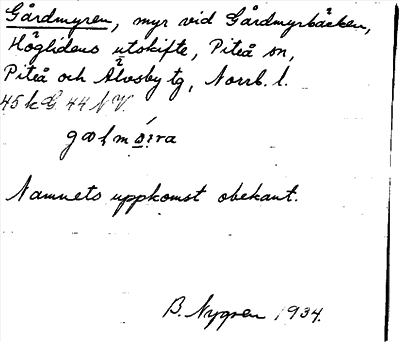 Gårdmyren, myr vid Gårdmyrbäcken,
Höglidens utskifte, Piteå sn,
Piteå och Älvsby tg, Norrb. l.
45 k G 44 N V.
Namnets uppkomst obekant.
B. Nygren 1934.